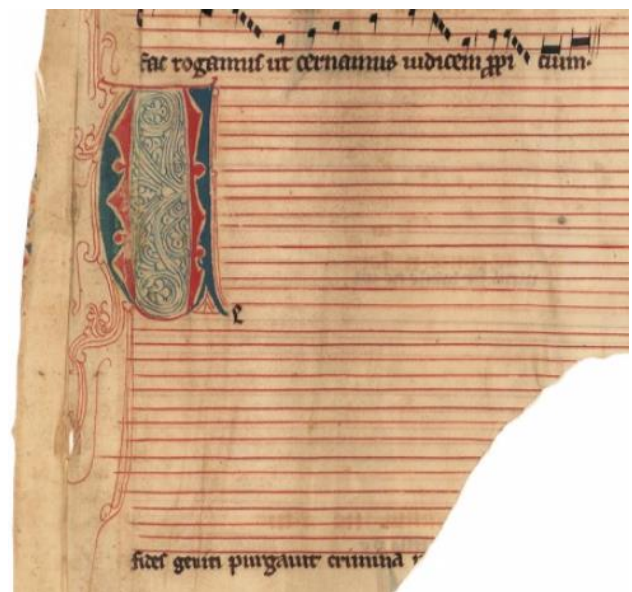 fac rogamus ut cernamus iudicem ꝓpi cium.
fides geniti purgauit crimina